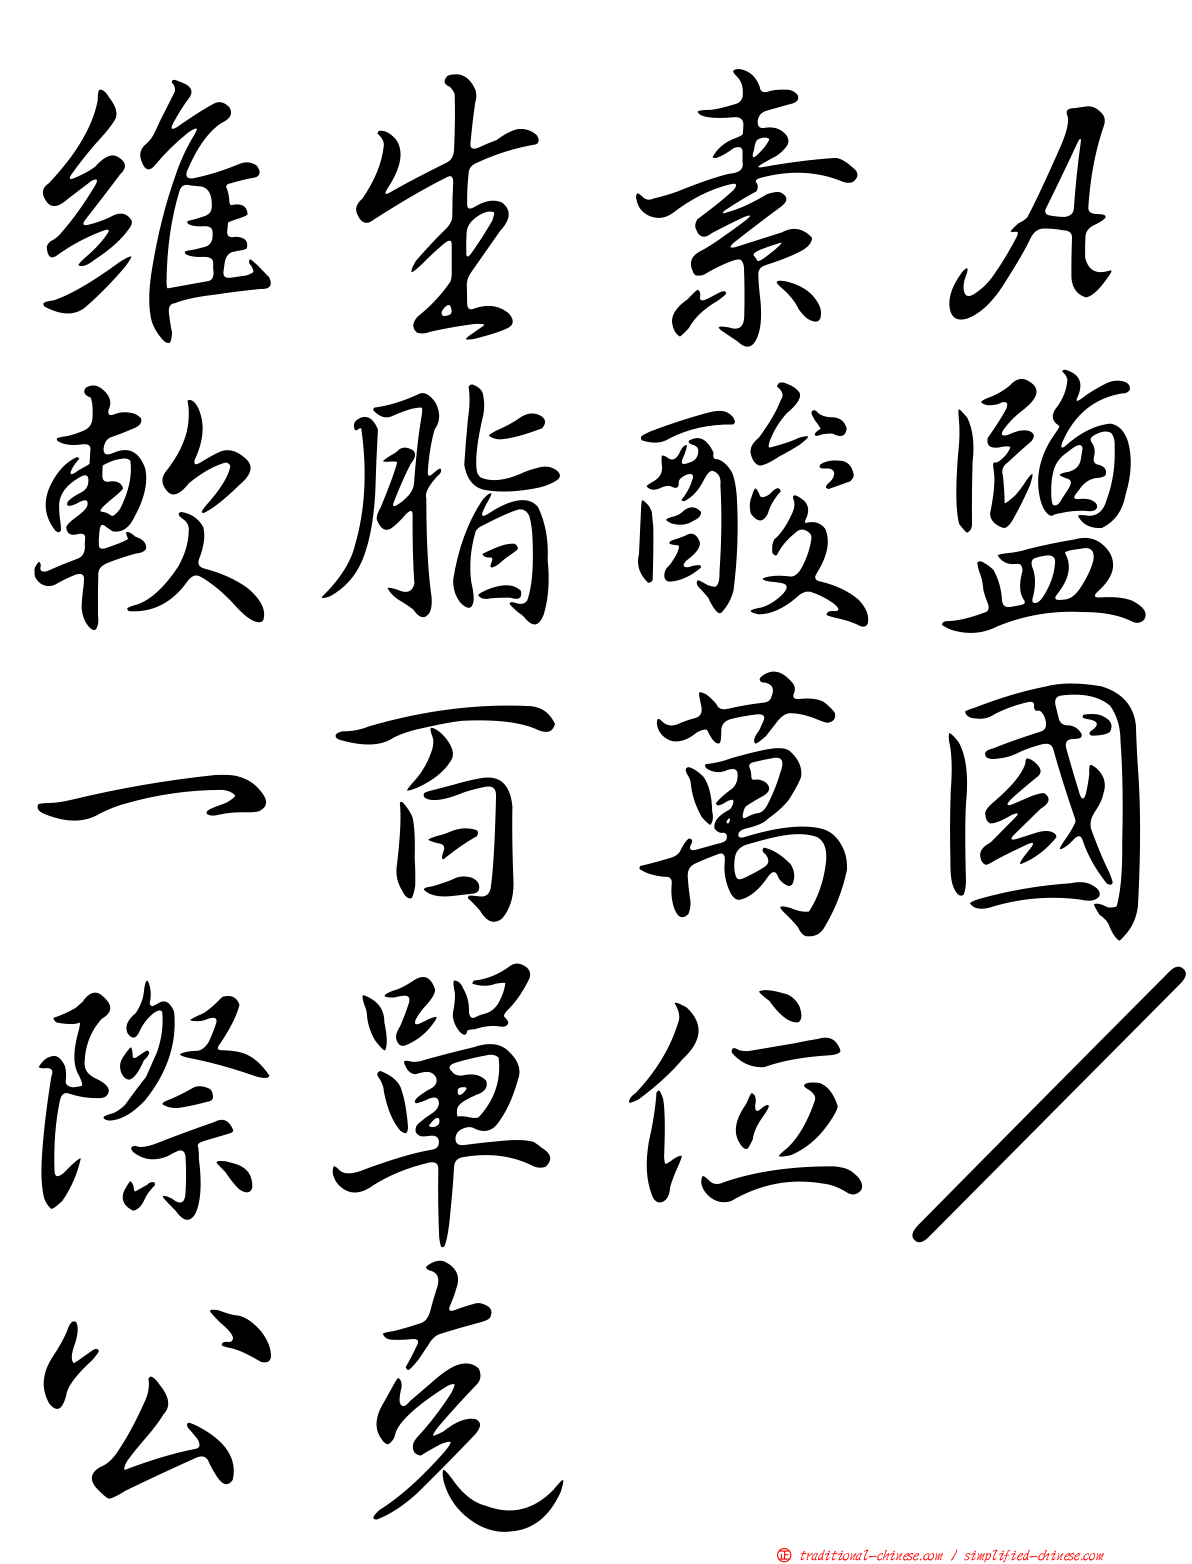 維生素A
軟脂酸鹽
一百萬國
際單位／
公克
㊣ traditional-chinese.com / simplified-chinese.com